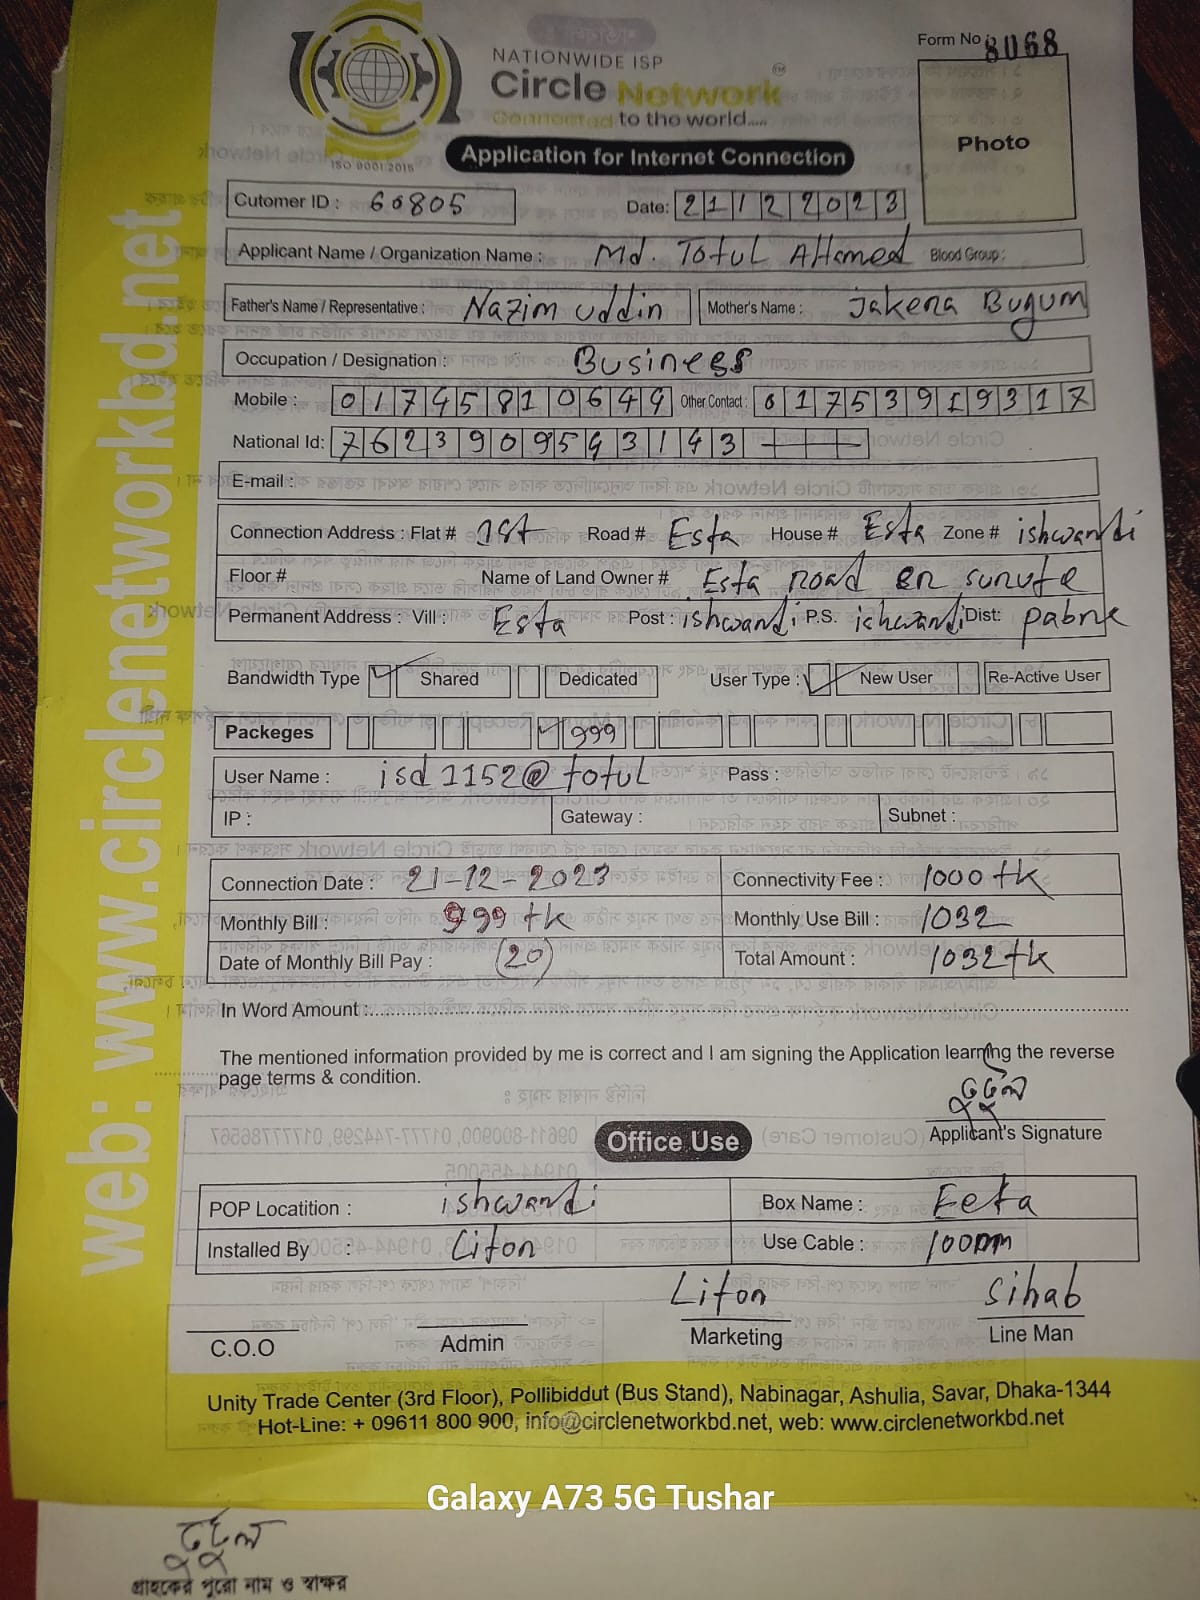 Form No 8068
NATIONWIDE ISP
Circle Network™
Connected to the world.....
ISO 9001:2015
Photo
Application for Internet Connection
Cutomer ID : 60805 Date: 21122023
Applicant Name / Organization Name : Md. Totul AHamed Blood Group :
Father's Name / Representative : Nazim uddin Mother's Name : Jakera Bugum
Occupation / Designation : Business
Mobile : 01745810649 Other Contact : 01753919317
National Id: 7623909543143
E-mail :
Connection Address : Flat # 1st Road # Esta House # Esta Zone # ishwardi
Floor # Name of Land Owner # Esta road
Permanent Address : Vill : Esta Post : ishwardi P.S. ishwardi Dist: pabna
Bandwidth Type ✓ Shared Dedicated User Type : ✓ New User Re-Active User
Packeges ✓ 999
User Name : isd1152@totul Pass :
IP : Gateway : Subnet :
Connection Date : 21-12-2023 Connectivity Fee : 1000 tk
Monthly Bill : 999 tk Monthly Use Bill : 1032
Date of Monthly Bill Pay : (20) Total Amount : 1032 tk
In Word Amount :
The mentioned information provided by me is correct and I am signing the Application learning the reverse
page terms & condition.
Applicant's Signature
Office Use
POP Locatition : ishwardi Box Name : Eeta
Installed By : Liton Use Cable : 100m
Liton Sihab
C.O.O Admin Marketing Line Man
Unity Trade Center (3rd Floor), Pollibiddut (Bus Stand), Nabinagar, Ashulia, Savar, Dhaka-1344
Hot-Line: + 09611 800 900, info@circlenetworkbd.net, web: www.circlenetworkbd.net
web: www.circlenetworkbd.net
Galaxy A73 5G Tushar
গ্রাহকের পুরো নাম ও স্বাক্ষর